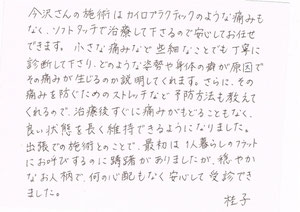 今沢さんの施術はカイロプラクティックのような痛みも
なく、ソフトタッチで治療して下さるので安心してお任せ
できます。小さな痛みなど些細なことでも丁寧に
診断して下さり、どのような姿勢や身体の癖が原因で
その痛みが生じるのか説明してくれます。さらに、その
痛みを防ぐためのストレッチなど予防方法も教えて
くれるので、治療後すぐに痛みがもどることもなく、
良い状態を長く維持できるようになりました。
出張での施術とのことで、最初は1人暮らしのフラット
にお呼びするのに躊躇がありましたが、穏やか
なお人柄で、何の心配もなく安心して受診でき
ました。
桂子